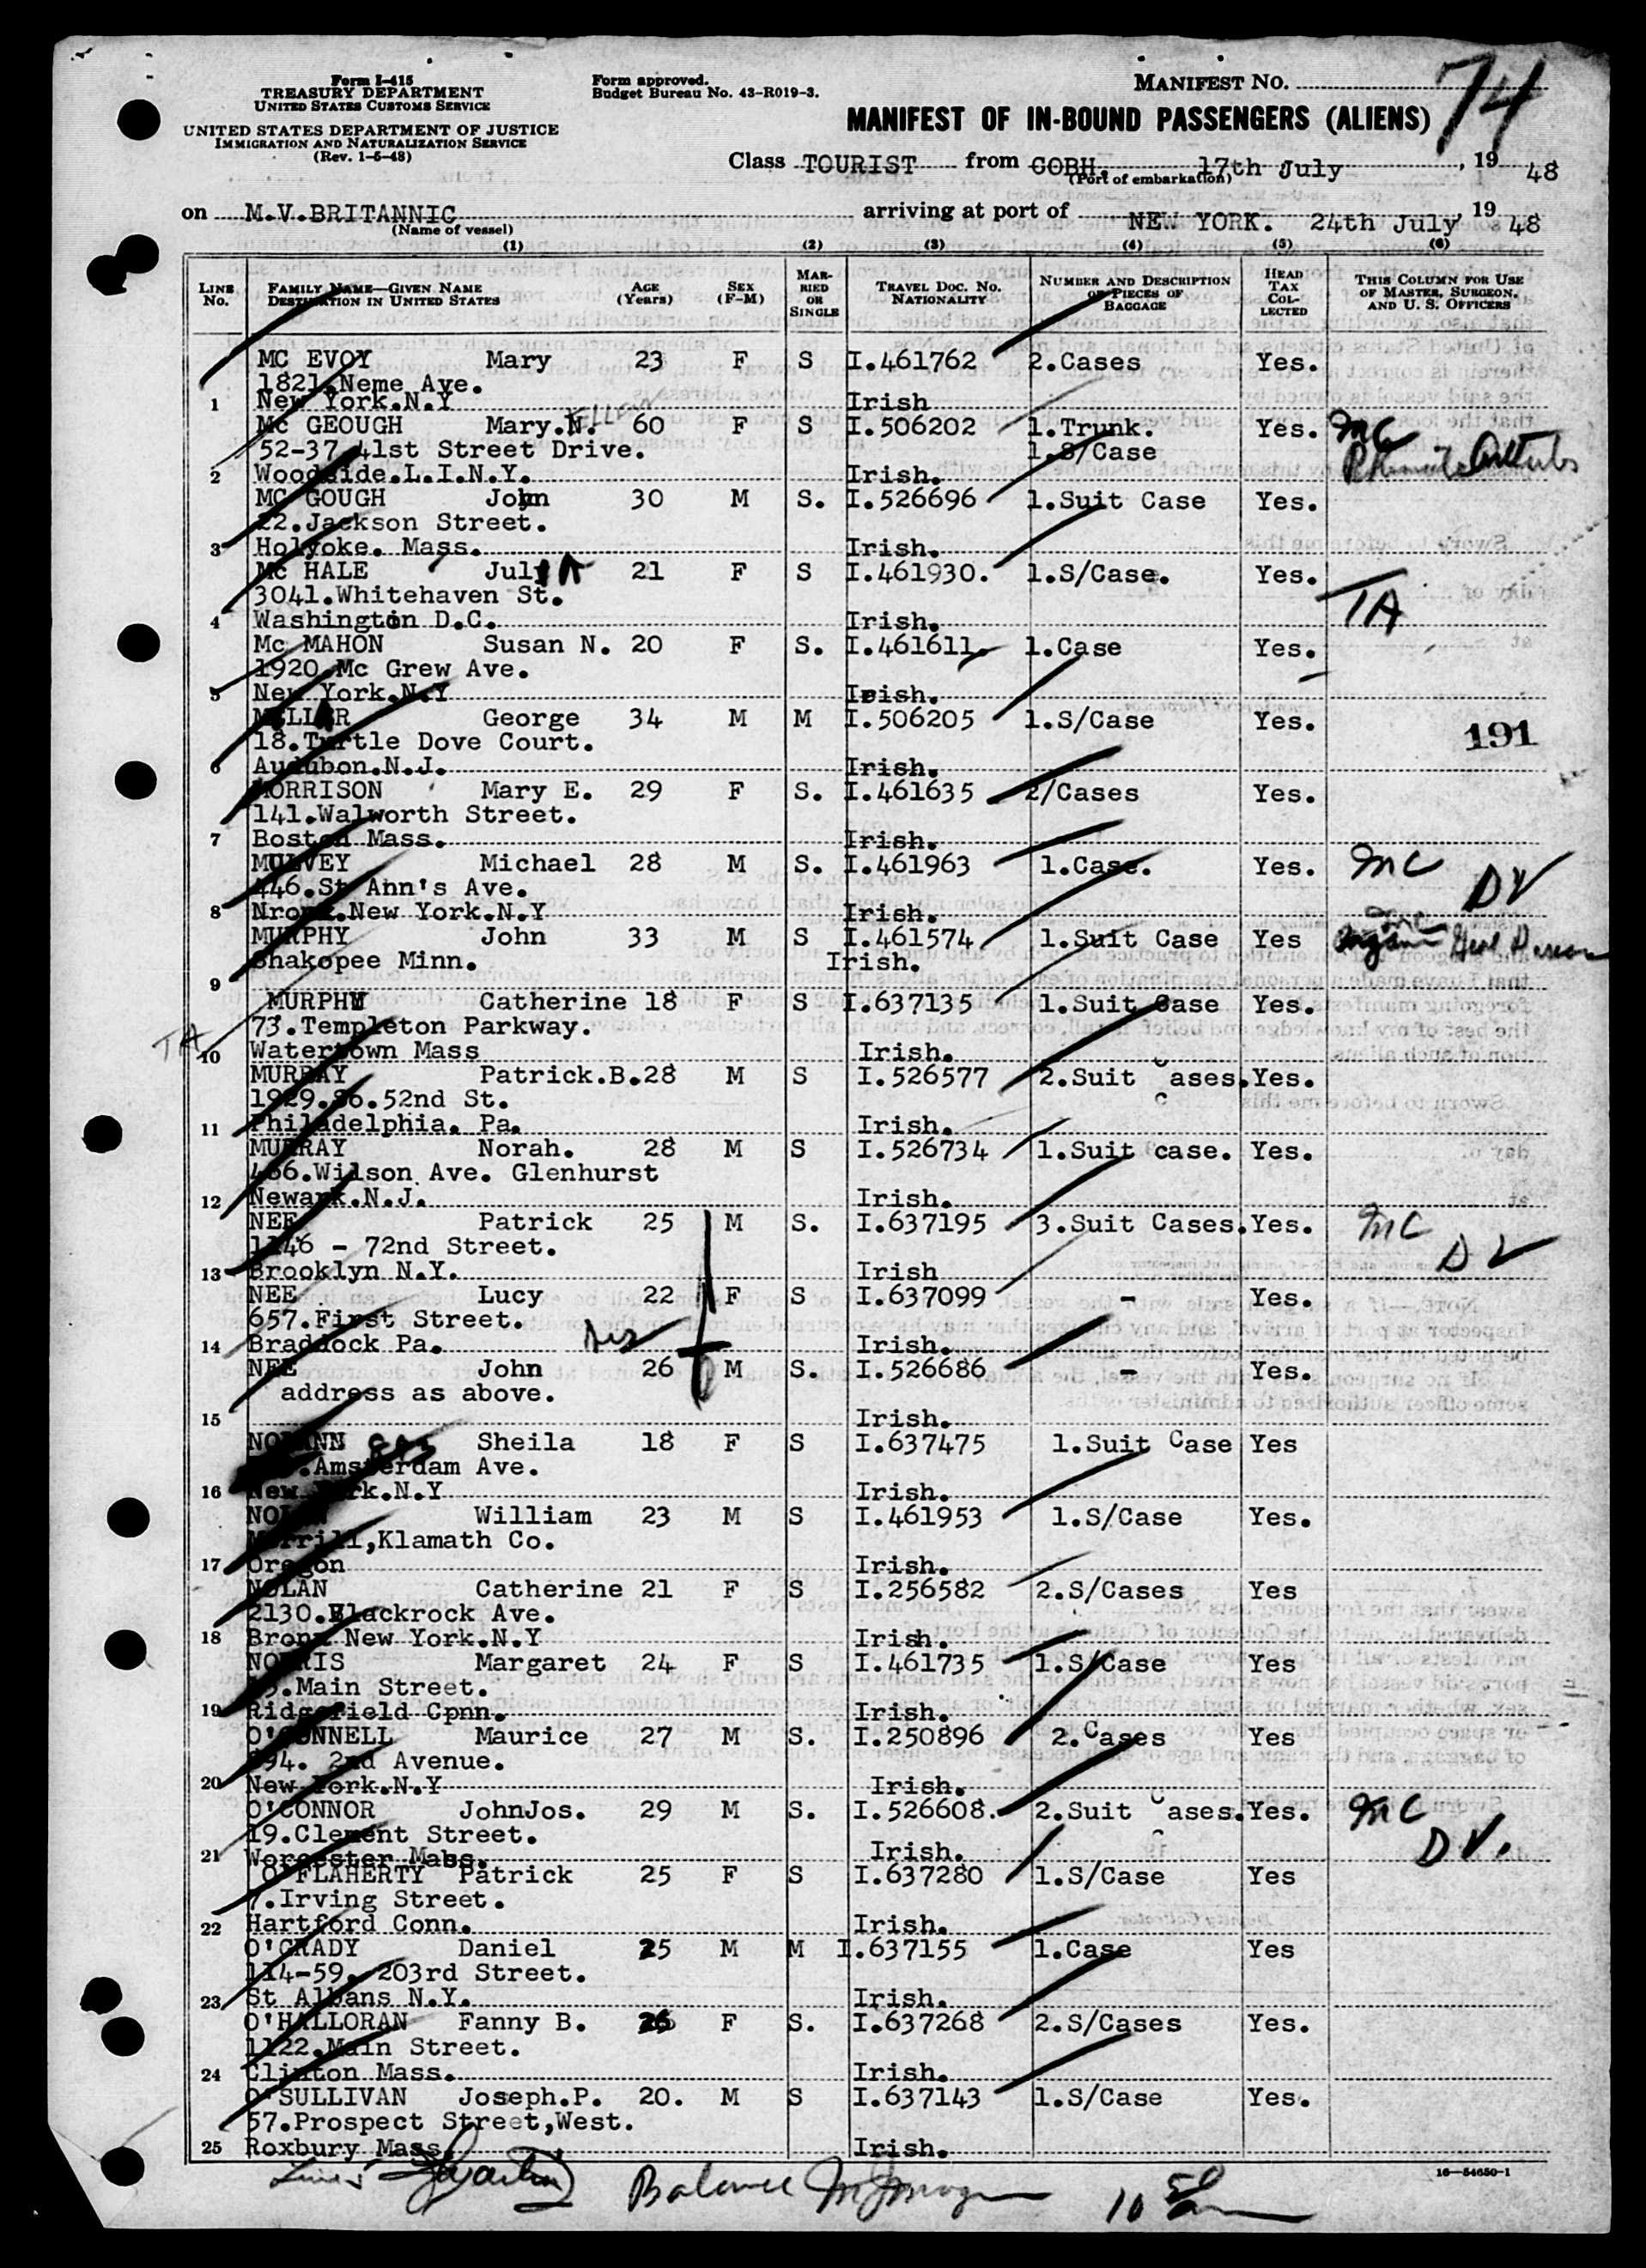 Form I-415
TREASURY DEPARTMENT
UNITED STATES CUSTOMS SERVICE
UNITED STATES DEPARTMENT OF JUSTICE
IMMIGRATION AND NATURALIZATION SERVICE
(Rev. 1-6-48)
Form approved.
Budget Bureau No. 43-R019-3.
MANIFEST NO. 74
MANIFEST OF IN-BOUND PASSENGERS (ALIENS)
Class TOURIST from COBH. 17th July, 19 48
(Port of embarkation)
on M.V.BRITANNIC arriving at port of NEW YORK. 24th July, 19 48
(Name of vessel)
(1) (2) (3) (4) (5) (6)
LINE NO. FAMILY NAME—GIVEN NAME DESTINATION IN UNITED STATES AGE (Years) SEX (F-M) MARRIED OR SINGLE TRAVEL DOC. NO. NATIONALITY NUMBER AND DESCRIPTION OF PIECES OF BAGGAGE HEAD TAX COLLECTED THIS COLUMN FOR USE OF MASTER, SURGEON, AND U. S. OFFICERS
MC EVOY Mary 23 F S I.461762 2.Cases Yes.
1821.Neme Ave.
1 New York.N.Y Irish
Mc GEOUGH Mary.N. 60 F S I.506202 1.Trunk. Yes. MC
52-37 41st Street Drive. 1.S/Case
2 Woodside.L.I.N.Y. Irish.
MC GOUGH John 30 M S. I.526696 1.Suit Case Yes.
22.Jackson Street.
3 Holyoke. Mass. Irish.
Mc HALE Julia 21 F S I.461930. 1.S/Case. Yes.
3041.Whitehaven St. TA
4 Washington D.C. Irish.
Mc MAHON Susan N. 20 F S. I.461611. 1.Case Yes.
1920 Mc Grew Ave.
5 New York.N.Y Irish.
MILLAR George 34 M M I.506205 1.S/Case Yes. 191
18.Turtle Dove Court.
6 Audubon.N.J. Irish.
MORRISON Mary E. 29 F S. I.461635 2/Cases Yes.
141.Walworth Street.
7 Boston Mass. Irish.
MULVEY Michael 28 M S. I.461963 1.Case. Yes. MC DV
446.St Ann's Ave.
8 Nronx.New York.N.Y Irish.
MURPHY John 33 M S I.461574 1.Suit Case Yes MC
Shakopee Minn. Irish.
9
MURPHY Catherine 18 F S I.637135 1.Suit Case Yes.
73.Templeton Parkway.
TA 10 Watertown Mass Irish.
MURRAY Patrick.B. 28 M S I.526577 2.Suit Cases. Yes.
1929.So.52nd St.
11 Philadelphia. Pa. Irish.
MURRAY Norah. 28 M S I.526734 1.Suit case. Yes.
466.Wilson Ave. Glenhurst
12 Newark.N.J. Irish.
NEE Patrick 25 M S. I.637195 3.Suit Cases. Yes. MC DV
1146 - 72nd Street.
13 Brooklyn N.Y. Irish
NEE Lucy 22 F S I.637099 - Yes.
657.First Street.
14 Braddock Pa. Irish.
NEE John 26 M S. I.526686 - Yes.
address as above.
15 Irish.
Sheila 18 F S I.637475 1.Suit Case Yes
.Amsterdam Ave.
16 New York.N.Y Irish.
NOLAN William 23 M S I.461953 1.S/Case Yes.
Merrill,Klamath Co.
17 Oregon Irish.
NOLAN Catherine 21 F S I.256582 2.S/Cases Yes
2130.Blackrock Ave.
18 Bronx New York.N.Y Irish.
NORRIS Margaret 24 F S I.461735 1.S/Case Yes
.Main Street.
19 Ridgefield Cpnn. Irish.
O'CONNELL Maurice 27 M S. I.250896 2.Cases Yes
894. 2nd Avenue.
20 New York.N.Y Irish.
O'CONNOR JohnJos. 29 M S. I.526608. 2.Suit Cases. Yes. MC
19.Clement Street. DV.
21 Worcester Mass. Irish.
O'FLAHERTY Patrick 25 F S I.637280 1.S/Case Yes
7.Irving Street.
22 Hartford Conn. Irish.
O'GRADY Daniel 25 M M I.637155 1.Case Yes
114-59. 203rd Street.
23 St Albans N.Y. Irish.
O'HALLORAN Fanny B. 26 F S. I.637268 2.S/Cases Yes.
1122.Main Street.
24 Clinton Mass. Irish.
O'SULLIVAN Joseph.P. 20. M S I.637143 1.S/Case Yes.
57.Prospect Street,West.
25 Roxbury Mass. Irish.
16—54650-1
Balance